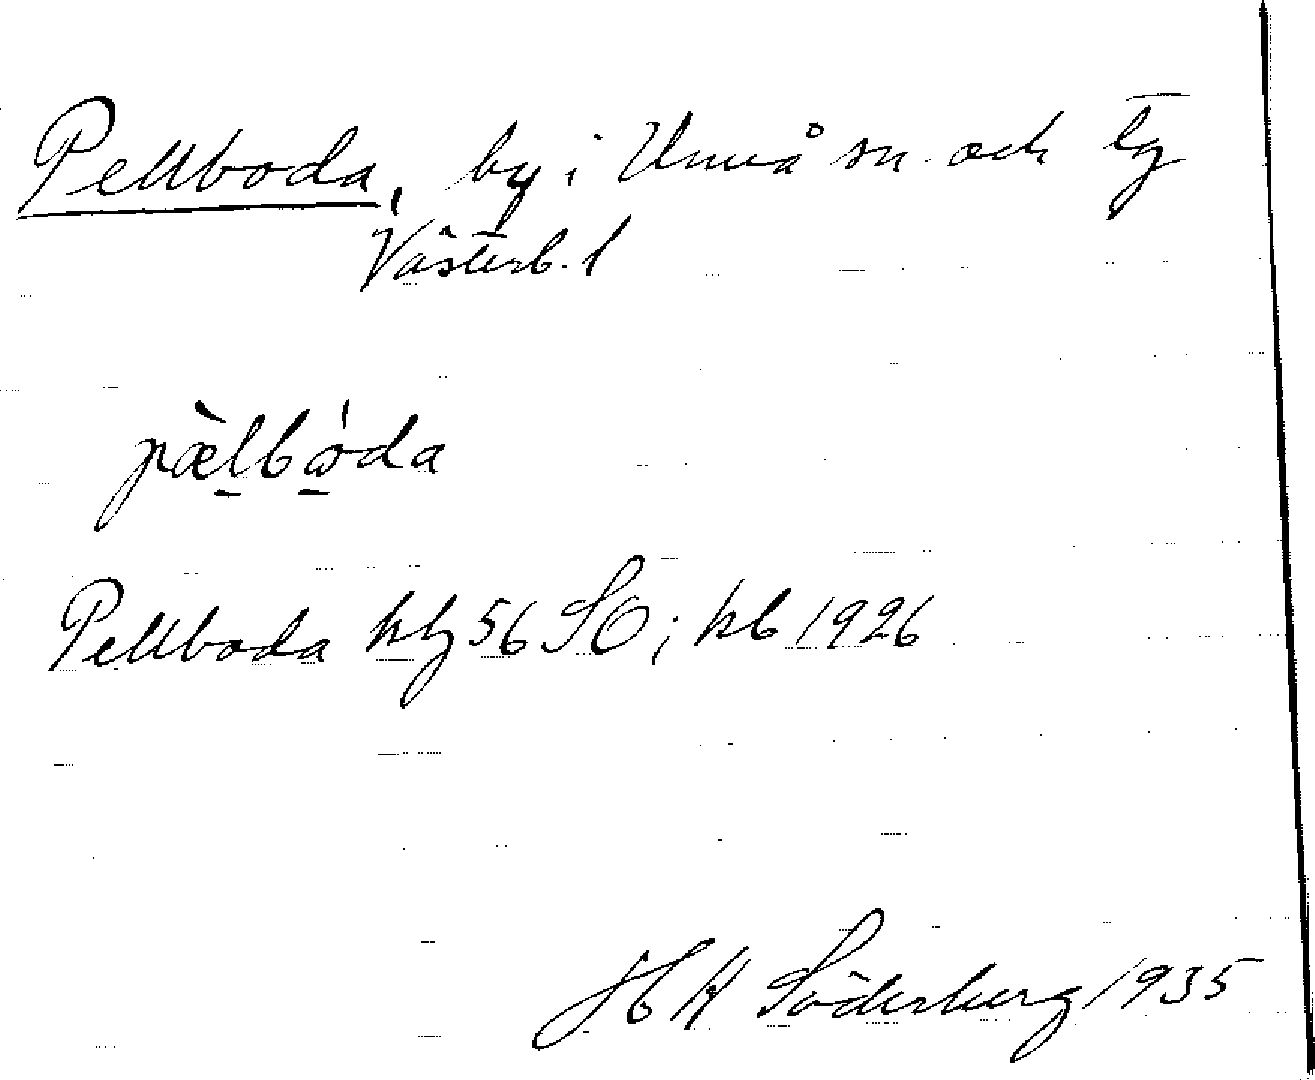 Pellboda, by i Umeå sn och tg
Västerb. l
pæ̀lbó̱da
Pellboda htg 56 SO; kb 1926
H K Söderberg 1935